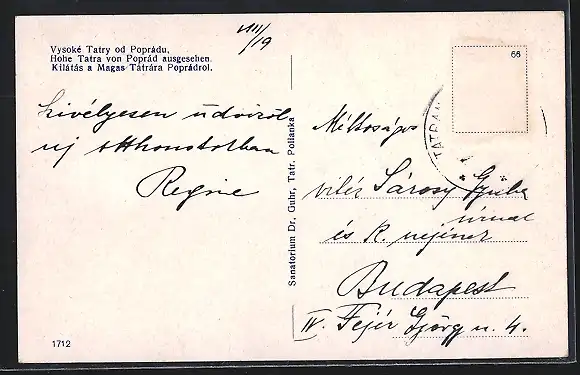 VIII/19
Vysoké Tatry od Poprádu.
Hohe Tatra von Poprád ausgesehen.
Kilátás a Magas Tátrára Poprádról.
Szivélyesen üdvözöl
uj otthonotokban
Regine
1712
Sanatorium Dr. Guhr, Tatr. Polianka
66
TATRAN
Méltóságos
vitéz Sárosy Gyula
úrnak
és k. nejének
Budapest
IV. Fejér György u. 4.